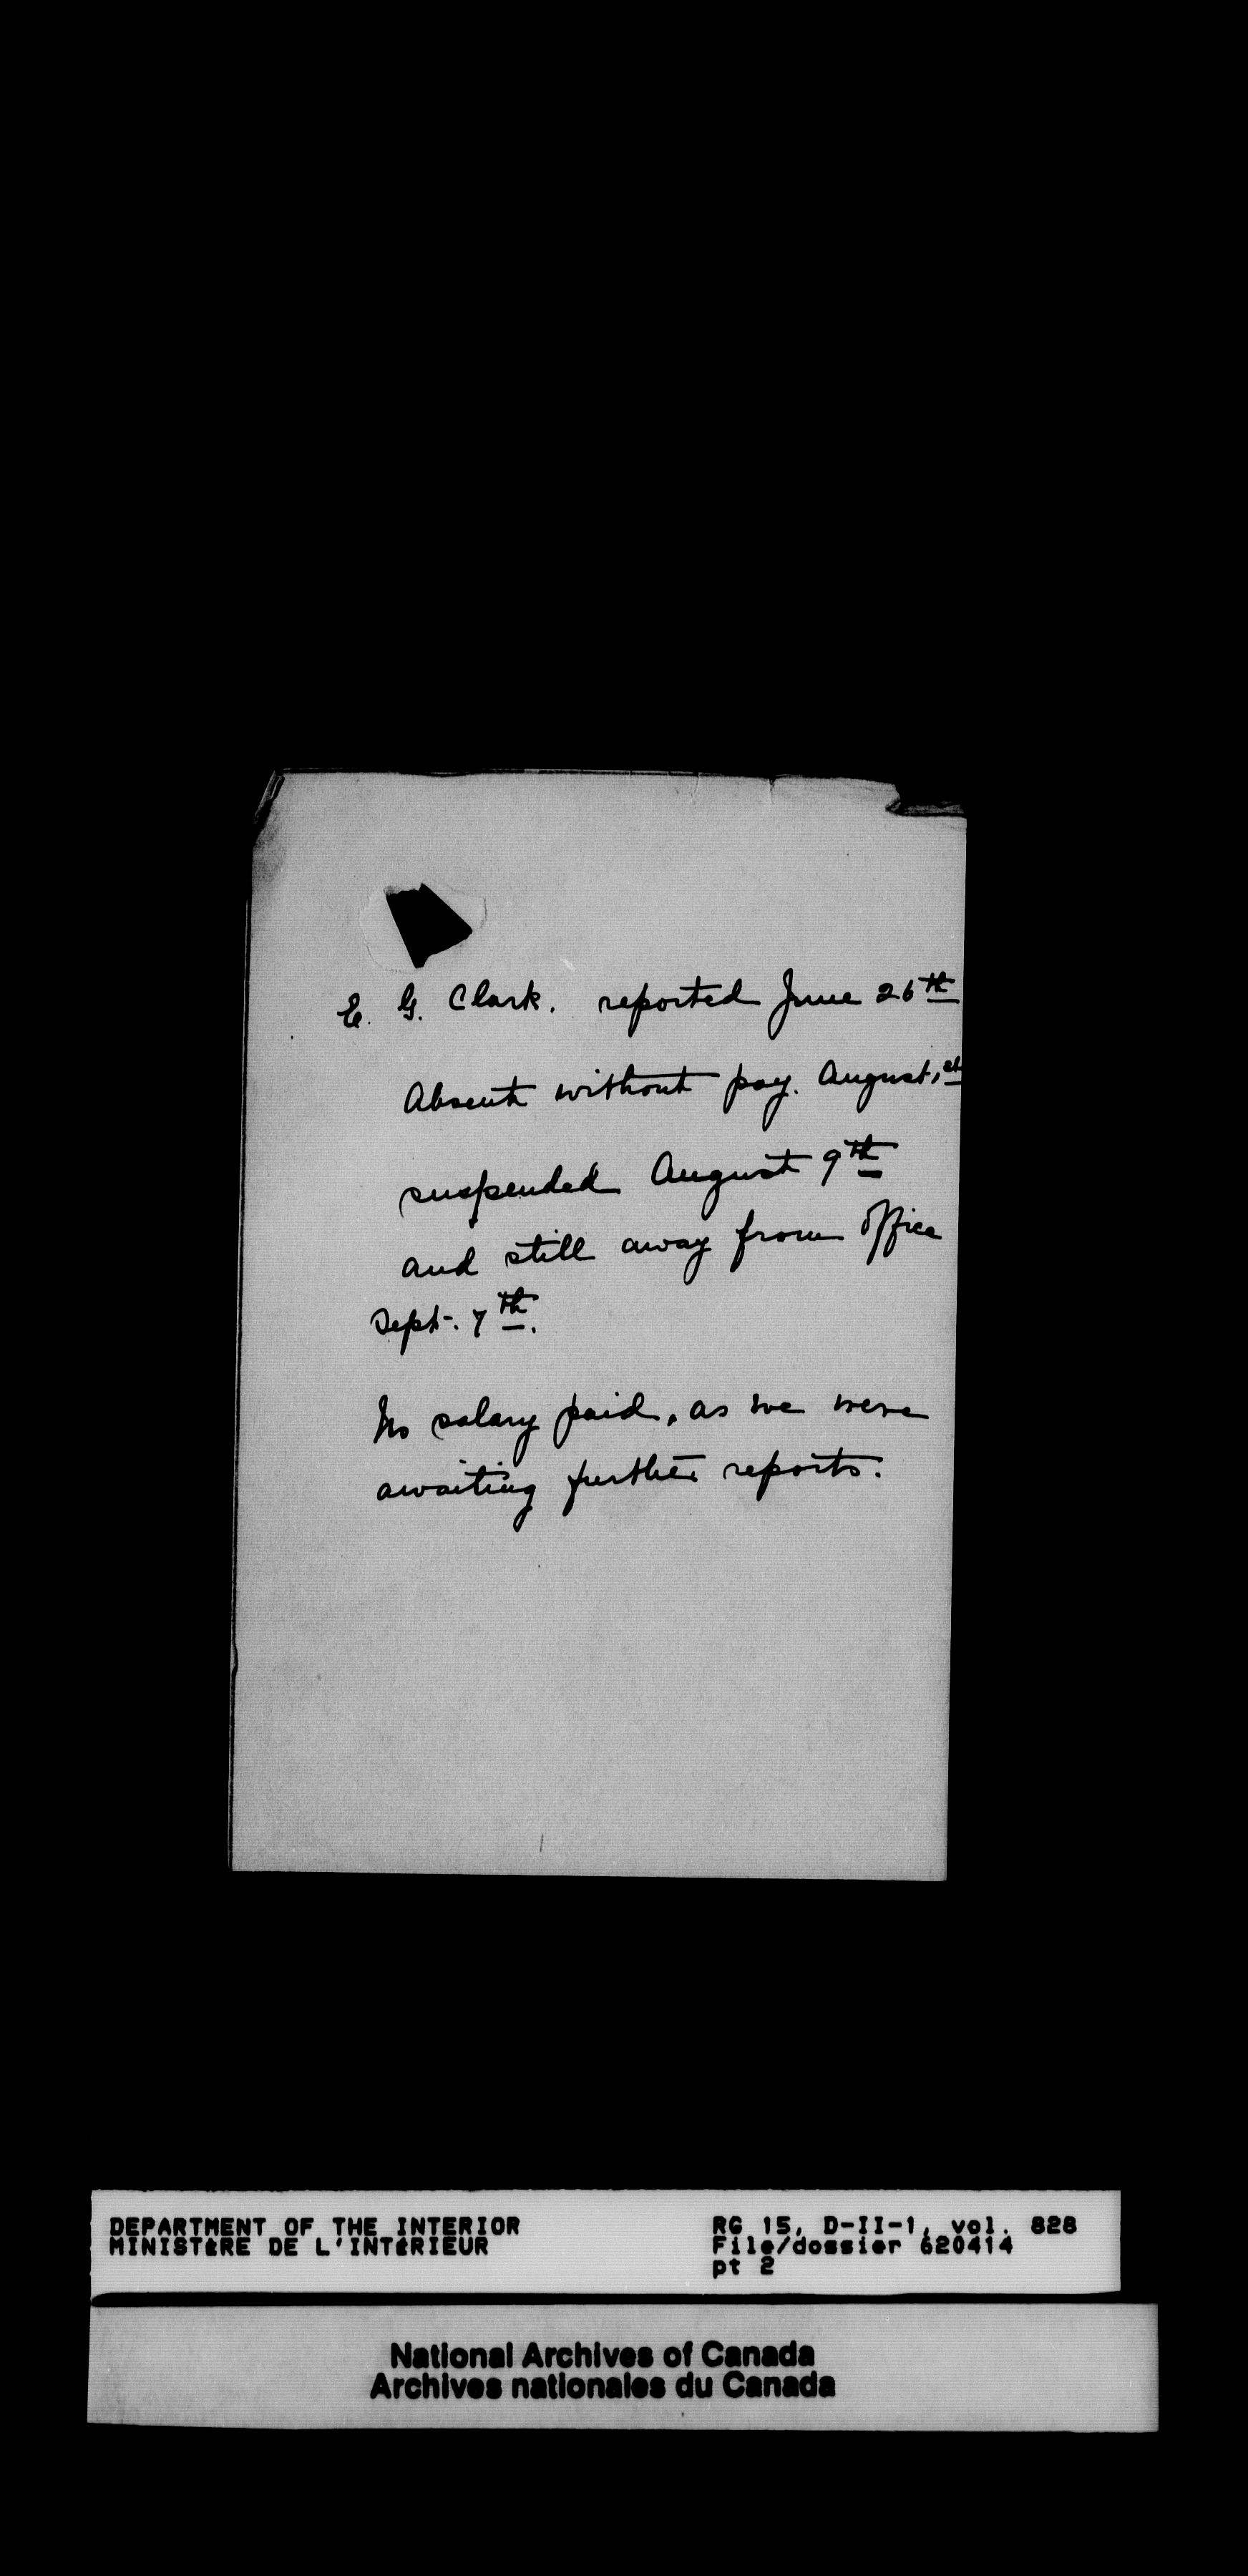 E. G. Clark. reported June 26th
Absent without pay. August 1st
suspended August 9th
and still away from office
Sept. 7th.
No salary paid, as we were
awaiting further reports.
DEPARTMENT OF THE INTERIOR
MINISTèRE DE L'INTéRIEUR
RG 15, D-II-1, vol. 828
File/dossier 620414
pt 2
National Archives of Canada
Archives nationales du Canada